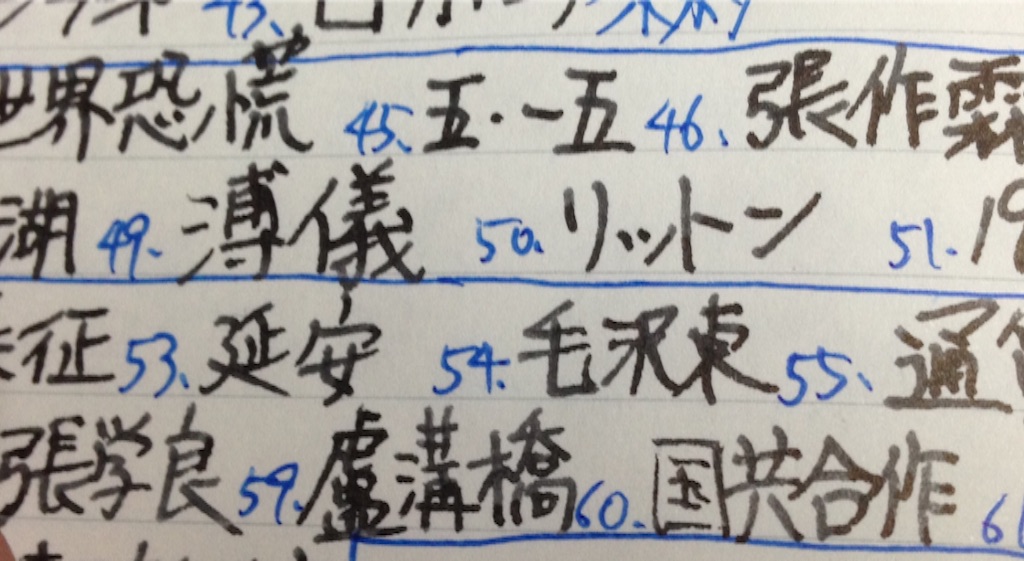 43.
世界恐慌 45. 五・一五 46. 張作霖
湖 49. 溥儀 50. リットン 51. 19
征 53. 延安 54. 毛沢東 55. 通
張学良 59. 盧溝橋 60. 国共合作 6